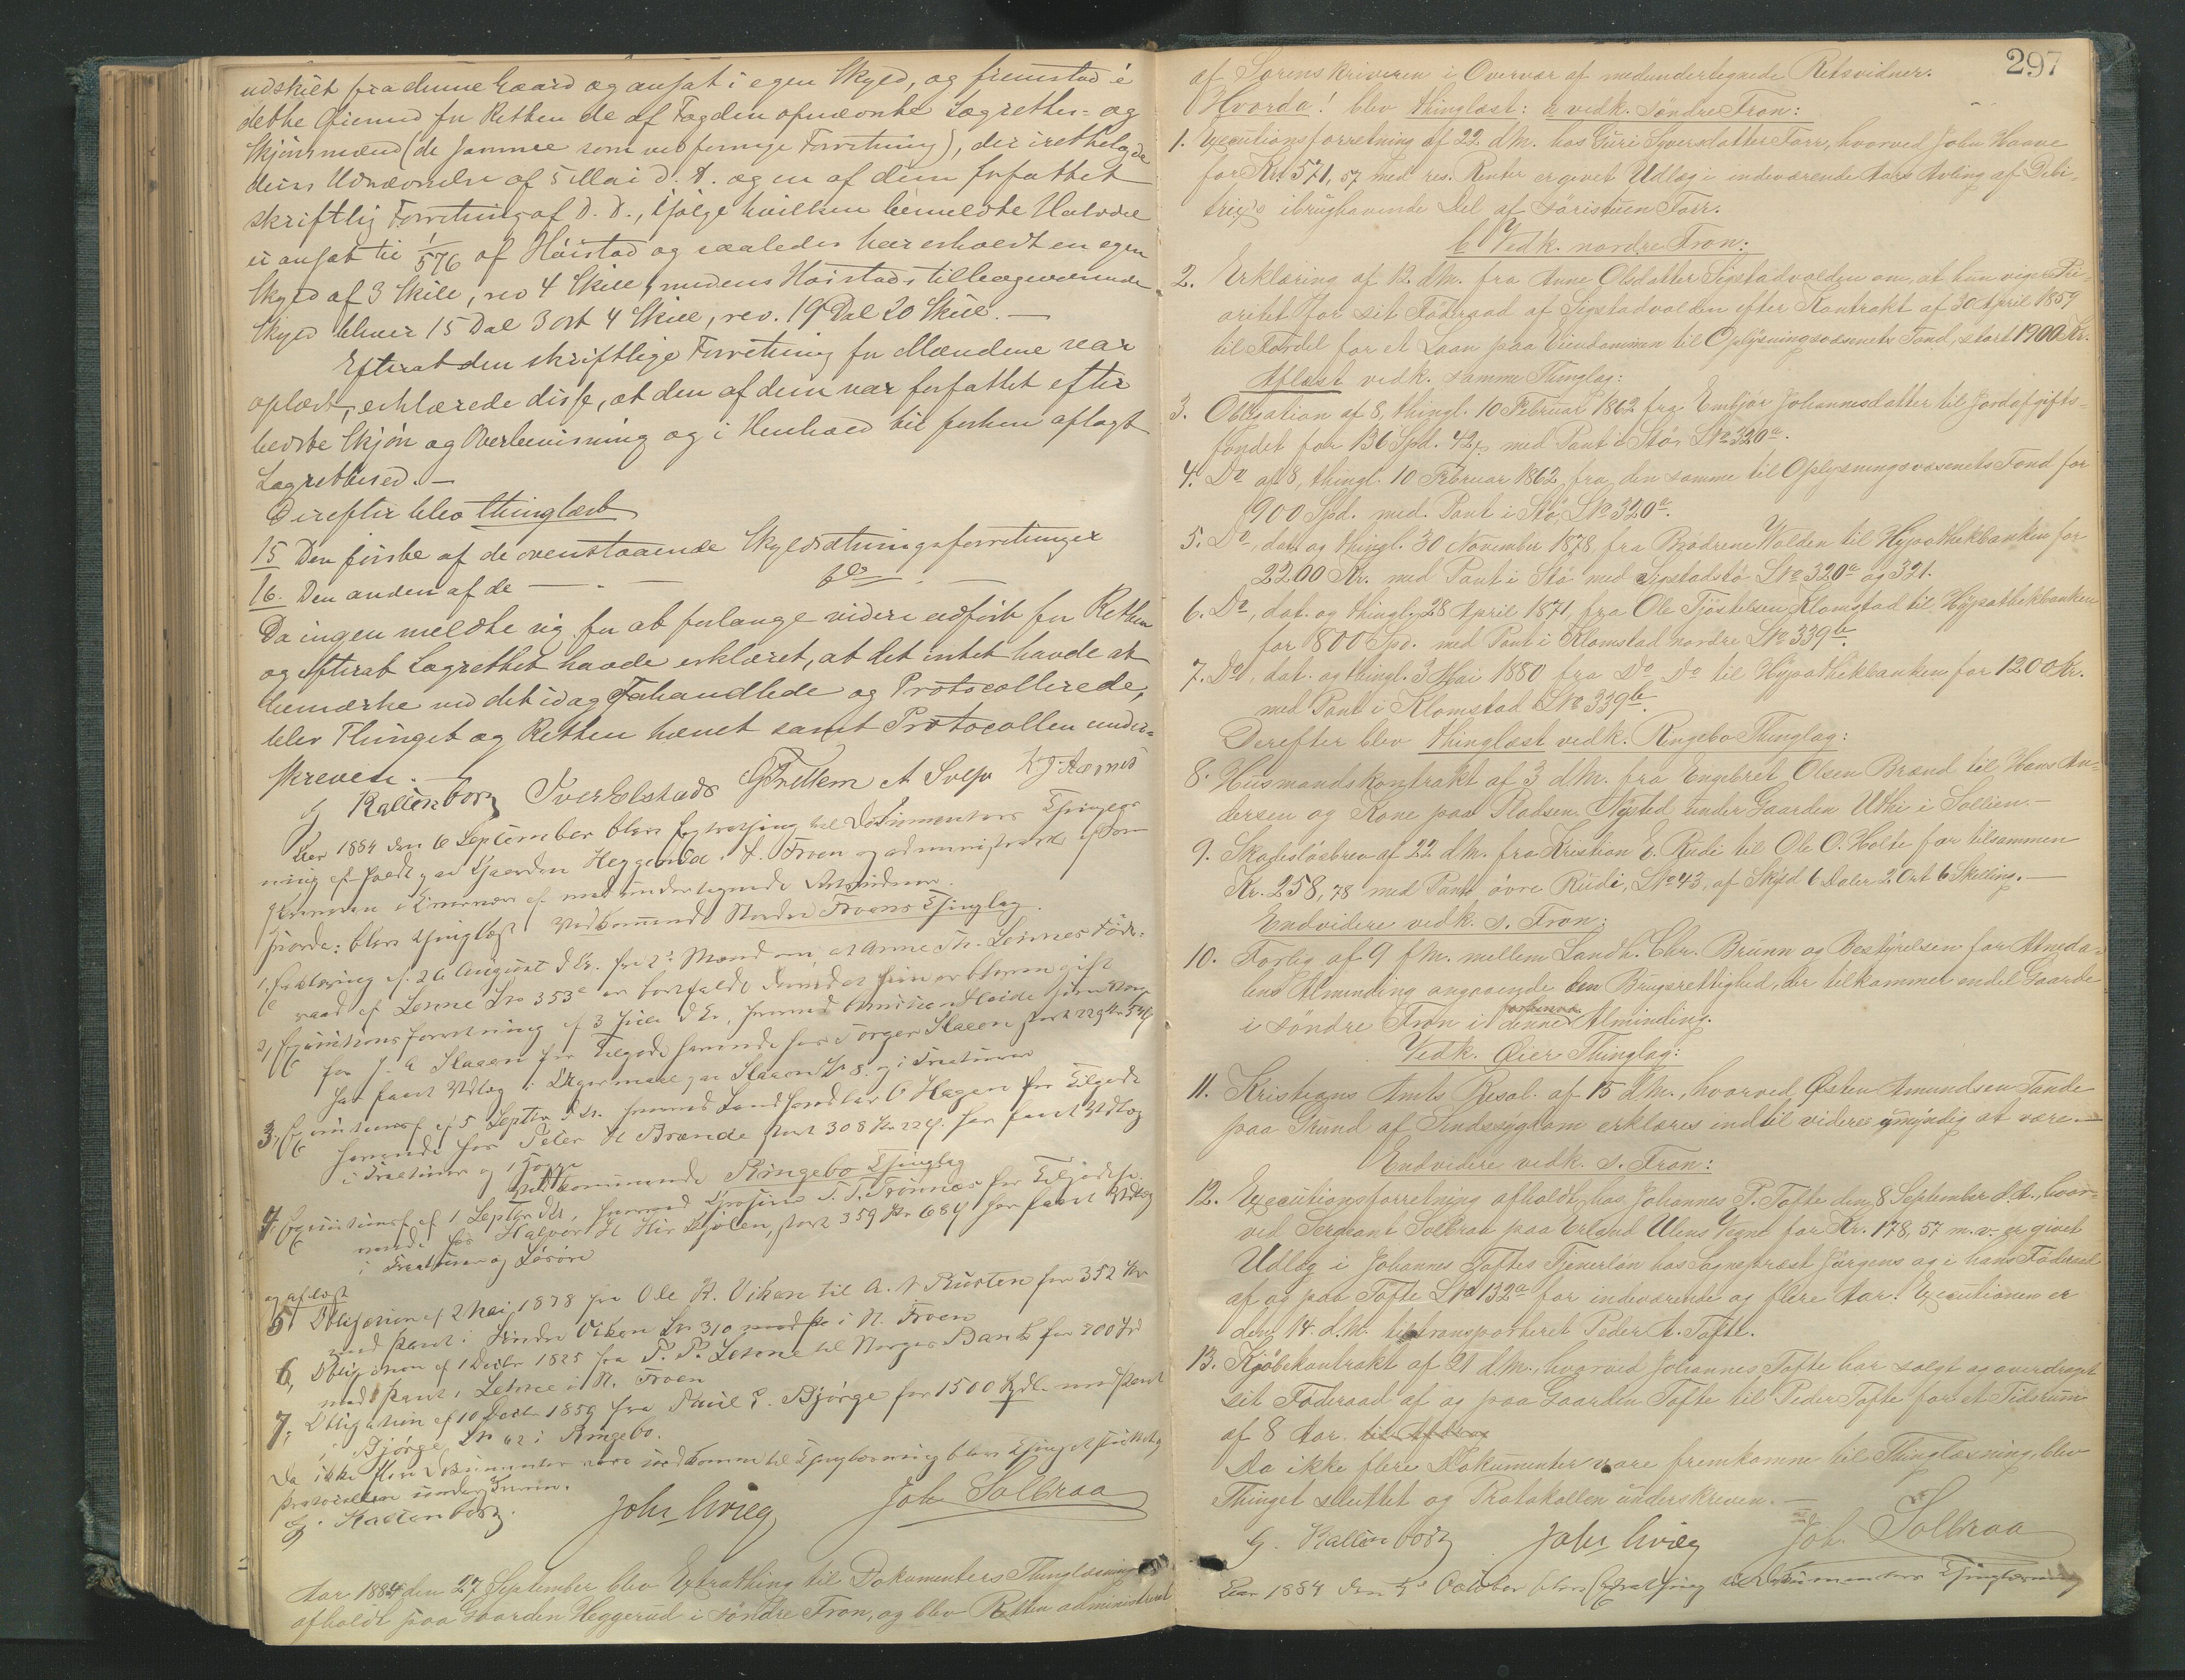 udskilt fra denne Gaard og ansat i egen Skyld, og fremstod i
dette Øiemed for Retten de af Fogden opnævnte Lagrettes- og
Skjønsmænd (de samme som ved forrige Forretning), der irettelagde
deres Udnævnelse af 5 Mai d. A. og en af dem forfattet
skriftlig Forretning af D. D., ifølge hvilken bemeldte Halvdel
er ansat til 1/576 af Høistad og saaledes har erholdt en egen
Skyld af 3 Skill, rev 4 Skill, medens Høistads tilbageværende
Skyld bliver 15 Dal 3 ort 4 Skill, rev. 19 Dal 20 Skill. —
Efterat den skriftlige Forretning for Mændene var
oplæst, erklærede disse, at den af dem var forfattet efter
bedste Skjøn og Overbeviisning og i Henhold til forhen aflagt
Lagrettesed. —
Derefter blev thinglæst
15 Den første af de ovenstaaende Skyldsætningsforretninger
16. Den anden af de — " — do — " —
Da ingen meldte sig for at forlange videre udført for Retten
og efterat Lagrettet havde erklæret, at det intet havde at
bemærke ved det idag Forhandlede og Protocollerede,
blev Thinget og Retten hævet samt Protocollen under-
skreven. —
G Kaltenborn Iver Elstads G Fretlem A Svep
Aar 1884 den 6 September blev Extrathing til Dokumenters Thinglæs-
ning afholdt paa Gaarden Heggerud i S. Fron og administreret af Soren-
skriveren i Overvær af medundertegnede Retsvidner.
Hvorda: blev thinglæst Vedkommende Nordre Frons Thinglag.
1. Erklæring af 26 August d Ar. fra 2de Mænd om, at Anne Th. Lønnes Føde-
raad af Lonne Lno 353e er bortfaldt derved at hun er bleven gift
2, Executionsforretning af 3 Juli d Ar, hvorved Christian Heide
for J. A Haagen for Tilgode havende hos Torger Haagen stort 229 Kr 54 Ø
har faaet Udlæg i
3, Executionsf af 5 Septbr d Ar. hvorved Landhandler O Hagen for Tilgode
havende hos Peter H Brænde stort 308 Kr 22 Ø. har faaet Udlæg
i Creaturer og
Vedkommende Ringebo Thinglag
4 Executionsf af 1 Septbr d Ar, hvorved T. T. Trønnæs for Tilgodeha-
vende hos Halvor H Kirkestuen, stort 359 Kr 68 Ø har faaet Udlæg
i Creaturer og Løsøre
og aflæst
5, Obligation af 2 Mai 1878 fra Ole K. Viken til A. N. Rusten for 352 Kr
med Pant i Søndre Viken Lno 310 i N. Fron
6, Obligation af 1 Decbr 1825 fra P. P. Lønne til Norges Bank for 200 Spd
med Pant i Lønne i N. Fron
7, Obligation af 10 Decbr 1859 fra Paul E. Bjørge for 1500 Spd. med Pant
i Bjørge Lno 62 i Ringebo.
Da ikke flere Dokumenter vare indkomne til Thinglæsning blev Thinget sluttet og
Protocollen underskreven.
G. Kaltenborn. John Hvieg Joh Solbraa
Aar 1884 den 27 September blev Extrathing til Dokumenters Thinglæsning
afholdt paa Gaarden Heggerud i søndre Fron, og blev Retten administreret
297
af Sorenskriveren i Overvær af medundertegnede Retsvidner.
Hvorda! blev thinglæst: a vedk. søndre Fron:
1. Executionsforretning af 22 d.M. hos Guri Syversdatter Forr, hvorved John Haave
for Kr. 571,57 med res. Renter er givet Udlæg i indeværende Aars Avling af Debi-
trix's ibrughavende Del af Søristuen Forr.
b Vedk. nordre Fron:
2. Erklæring af 12 d.M. fra Anne Olsdatter Sigstadvolden om, at hun viger Pri-
oritet for sit Føderaad af Sigstadvolden efter Kontrakt af 30 April 1859
til Fordel for et Laan paa Eiendommen til Oplysningsvæsenets Fond, stort 1900 Kr.
Aflæst vedk. samme Thinglag:
3. Obligation af 8, thingl. 10 Februar 1862 fra Embjør Johannesdatter til Jordafgifts-
fondet for 136 Spd. 42 ß med Pant i Stø, Lno 320a.
4. Do af 8, thingl. 10 Februar 1862 fra den samme til Oplysningsvæsenets Fond for
900 Spd. med Pant i Stø, Lno 320a.
5. Do, dat. og thingl. 30 November 1878 fra Brødrene Volden til Hypothekbanken for
2200 Kr. med Pant i Stø med Sigstadstø Lno 320a og 321.
6. Do, dat. og thingl. 28 April 1871 fra Ole Tjøstelsen Klomstad til Hypothekbanken
for 800 Spd. med Pant i Klomstad nordre Lno 339b.
7. Do, dat. og thingl. 3 Mai 1880 fra Do Do til Hypothekbanken for 1200 Kr.
med Pant i Klomstad Lno 339b.
Derefter blev thinglæst vedk. Ringebo Thinglag:
8. Husmandskontrakt af 3 d.M. fra Engebret Olsen Brænd til Hans An-
dersen og Kone paa Pladsen Nysted under Gaarden Uthi i Sollien. —
9. Skadesløsbrev af 22 d.M. fra Kristian E. Rudi til Ole O. Holte for tilsammen
Kr. 258,78 med Pant øvre Rudi, Lno 43, af Skyld 6 Daler 2 Ort 6 Skilling. —
Endvidere vedk. s. Fron:
10. Forlig af 9 f.M. mellem Landh. Chr. Brunn og Bestyrelsen for Atneda-
lens Alminding angaaende den Brugsrettighed, der tilkommer endel Gaarde
i søndre Fron i denne Alminding.
Vedk. Øier Thinglag:
11. Kristians Amts Resol. af 15 d.M., hvorved Østen Amundsen Tande
paa Grund af Sindssygdom erklæres indtil videre umyndig at være. —
Endvidere vedk. s. Fron:
12. Executionsforretning afholdt hos Johannes P. Tofte den 8 September d.A., hvor-
ved Sergeant Solbraa paa Erland Ulens Vegne for Kr. 178,57 m.v. er givet
Udlæg i Johannes Toftes Tjenerløn hos Sogneprest Jørgens og i hans Føderaad
af og paa Tofte Lno 132a for indeværende og flere Aar. Executionen er
den 14. d.M. tiltransporteret Peder A. Tofte.
13. Kjøbekontrakt af 21 d.M., hvorved Johannes Tofte har solgt og overdraget
sit Føderaad af og paa Gaarden Tofte til Peder Tofte for et Tidsrum
af 8 Aar.
Da ikke flere Dokumenter vare fremkomne til Thinglæsning, blev
Thinget sluttet og Protokollen underskreven. —
G. Kaltenborn John Hvieg Joh. Solbraa
Aar 1884 den October blev Extrathing til Dokumenters Thinglæsning